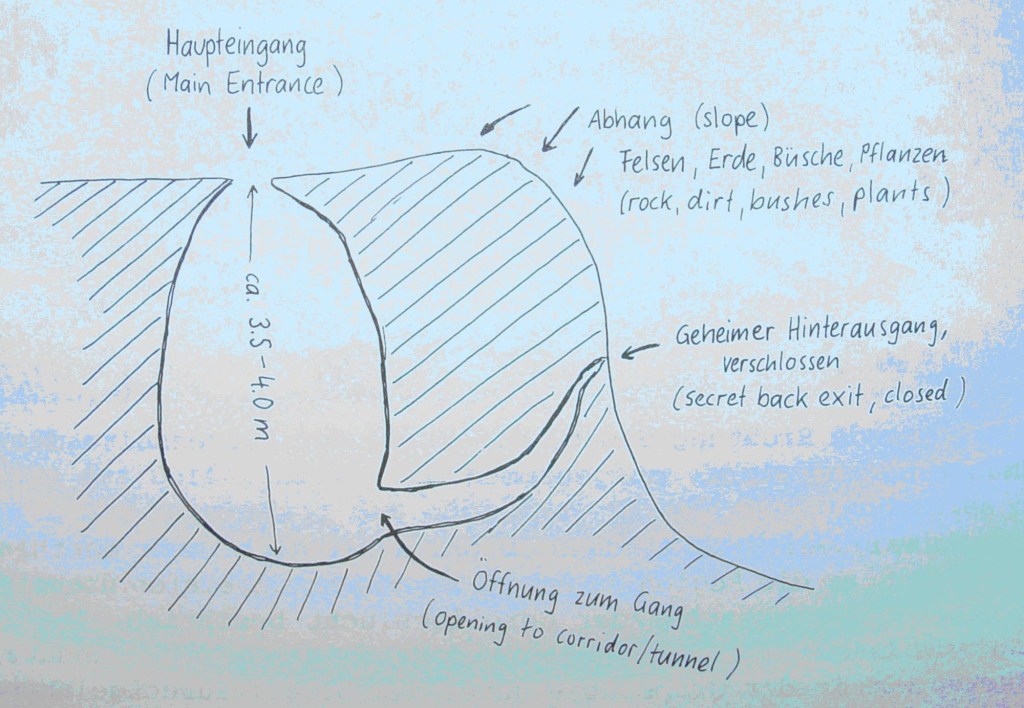 Haupteingang
(Main Entrance)
Abhang (slope)
Felsen, Erde, Büsche, Pflanzen
(rock, dirt, bushes, plants)
ca. 3.5-4.0 m
Geheimer Hinterausgang,
verschlossen
(secret back exit, closed)
Öffnung zum Gang
(opening to corridor/tunnel)